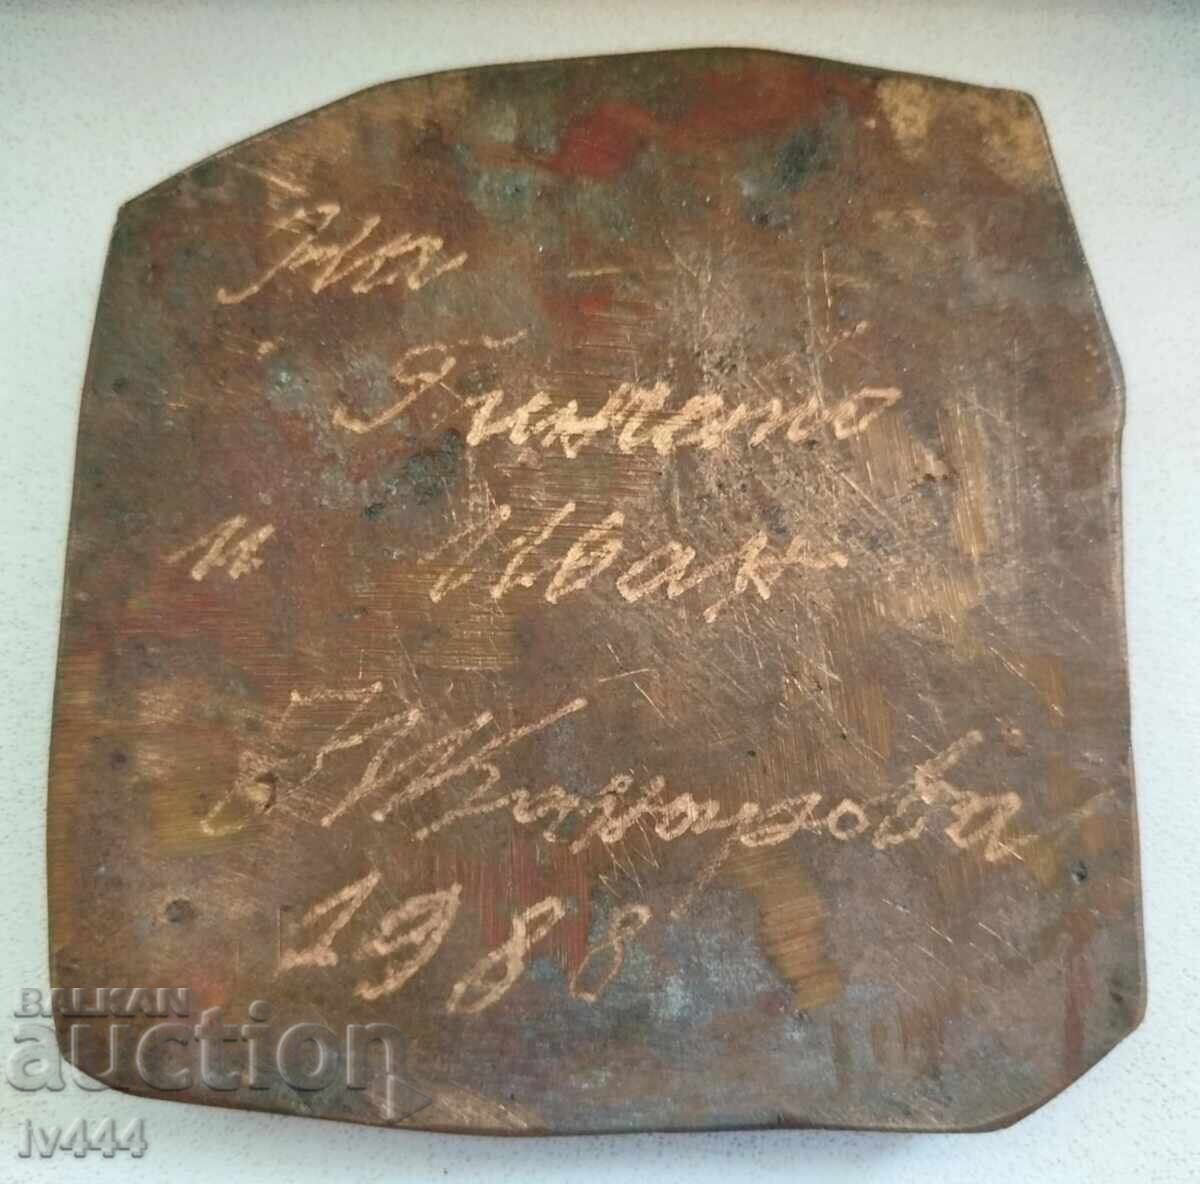 На
Гинчето
и Иван
1988
BALKAN
auction
jv444